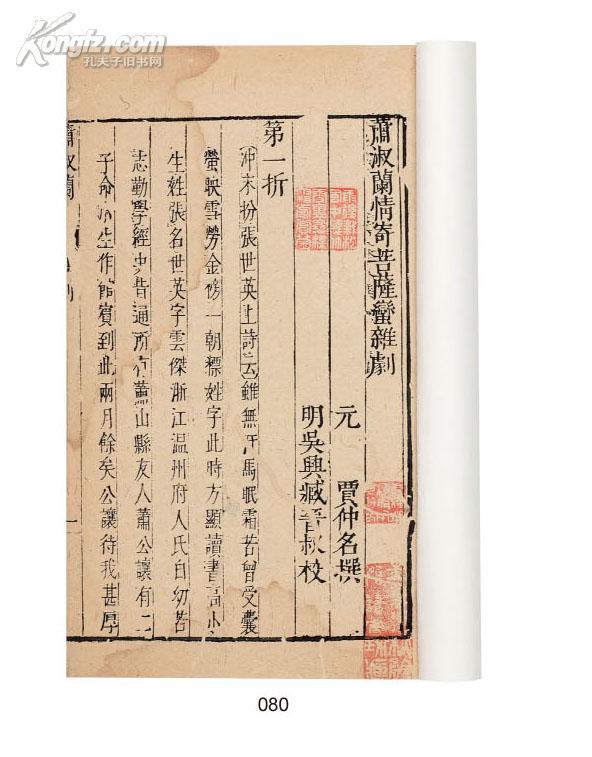 Kongfz.com
孔夫子旧书网
蕭淑蘭情寄菩薩蠻雜劇
元 賈仲名撰
明吳興臧晉叔校
第一折
沖末扮張世英上詩云雖無汗馬眠霜苦曾受囊
螢映雪勞金榜一朝標姓字此時方顯讀書高小
生姓張名世英字雲傑浙江温州府人氏自幼苦
志勤學經史皆通所有蕭山縣友人蕭公讓有二
子命小生作館賓到此兩月餘矣公讓待我甚厚
蕭淑蘭
雜劇
一
080